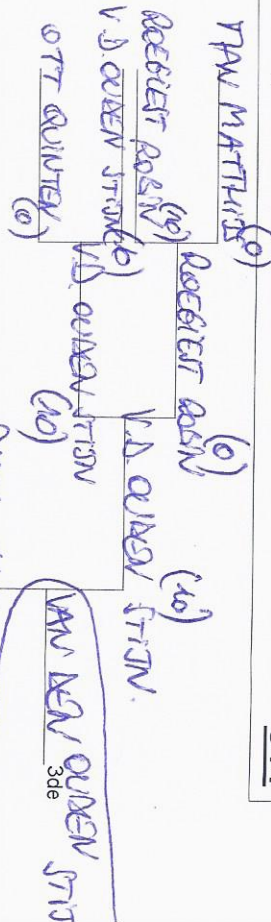 MAN MATTHIJS (0)
ROEGIEST ROBIN (10)
V.D. OUDEN STIJN (10)
OTT QUINTEN (0)
ROEGIEST ROBIN (0)
V.D. OUDEN STIJN (10)
V.D. OUDEN STIJN. (10)
VAN DEN OUDEN
3de